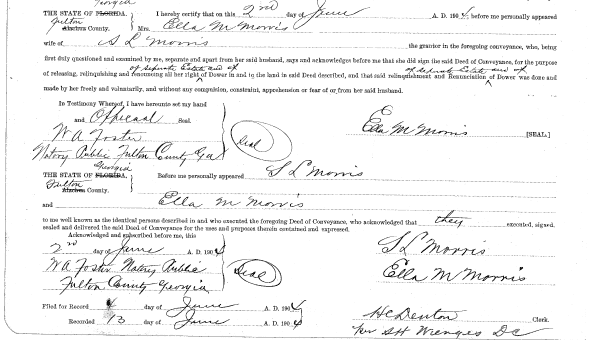 Georgia
THE STATE OF FLORIDA, I hereby certify that on this 2nd day of June A. D. 1904, before me personally appeared
Fulton
Alachua County. Mrs. Ella M Morris
wife of S L Morris the grantor in the foregoing conveyance, who, being
first duly questioned and examined by me, separate and apart from her said husband, says and acknowledges before me that she did sign the said Deed of Conveyance, for the purpose
of seperate Estate and of of seperate Estate and of
of releasing, relinquishing and renouncing all her right of Dower in and to the land in said Deed described, and that said relinquishment and Renunciation of Dower was done and
made by her freely and voluntarily, and without any compulsion, constraint, apprehension or fear of or from her said husband.
In Testimony Whereof, I have hereunto set my hand
and Official Seal
E
W A Foster Seal Ella M Morris [SEAL]
Notary Public Fulton County Ga
Georgia
THE STATE OF FLORIDA, Before me personally appeared S L Morris
Fulton
Alachua County.
and Ella M Morris
to me well known as the identical persons described in and who executed the foregoing Deed of Conveyance, who acknowledged that they executed, signed,
sealed and delivered the said Deed of Conveyance for the uses and purposes therein contained and expressed.
Acknowledged and subscribed before me, this
2nd day of June A. D. 1904 S L Morris
W A Foster Notary Public Seal Ella M Morris
Fulton County Georgia
Filed for Record 4 day of June A. D. 1904
H C Denton Clerk.
Recorded 13 day of June A. D. 1904
per S H Wienges D C